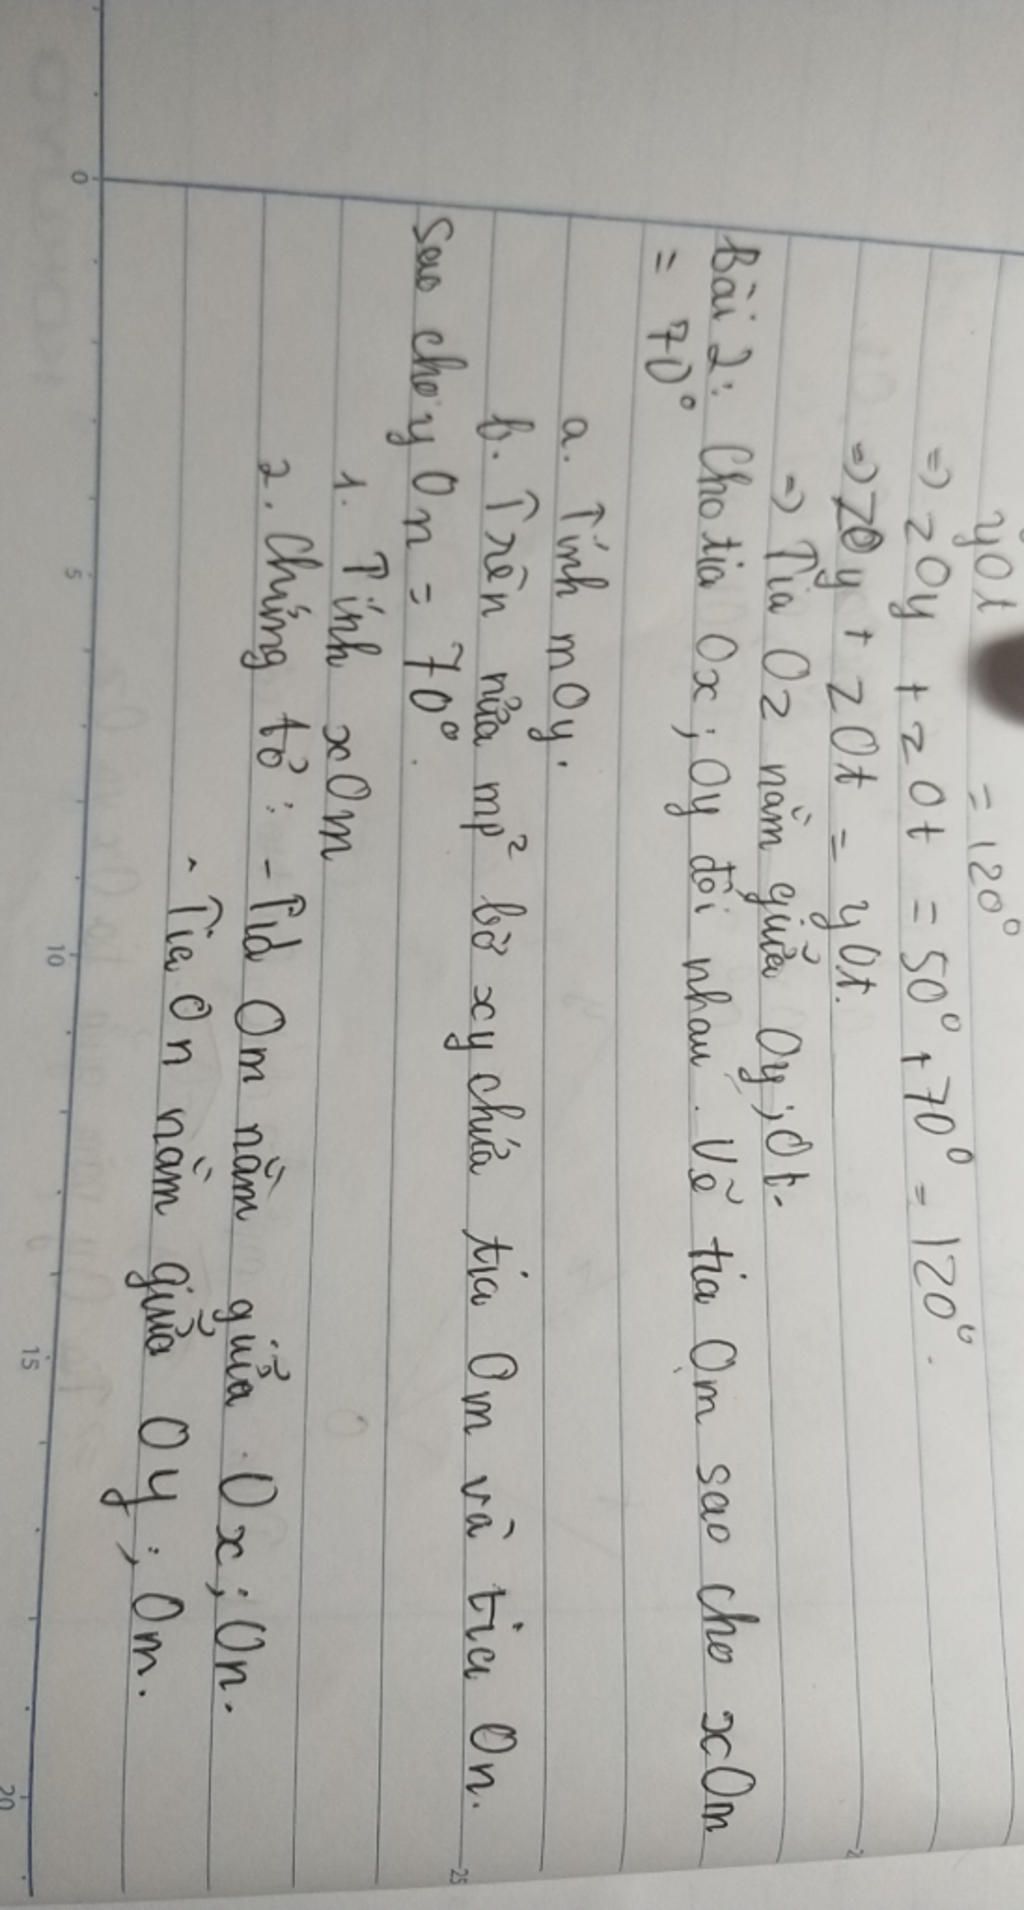 yOt = 120°
⇒ zOy + zOt = 50° + 70° = 120°.
⇒ zOy + zOt = yOt.
⇒ Tia Oz nằm giữa Oy; Ot.
Bài 2: Cho tia Ox; Oy đối nhau. Vẽ tia Om sao cho xOm
= 70°
a. Tính mOy.
b. Trên nửa mp² bờ xy chứa tia Om vẽ tia On.
sao cho yOn = 70°.
1. Tính xOm
2. Chứng tỏ: - Tia Om nằm giữa Ox; On.
- Tia On nằm giữa Oy; Om.
0
5
10
15
20
25